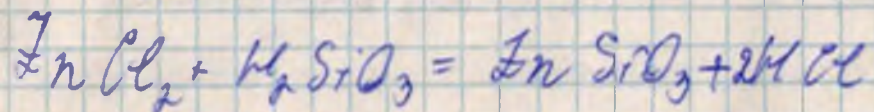 ZnCl₂ + H₂SiO₃ = ZnSiO₃ + 2HCl